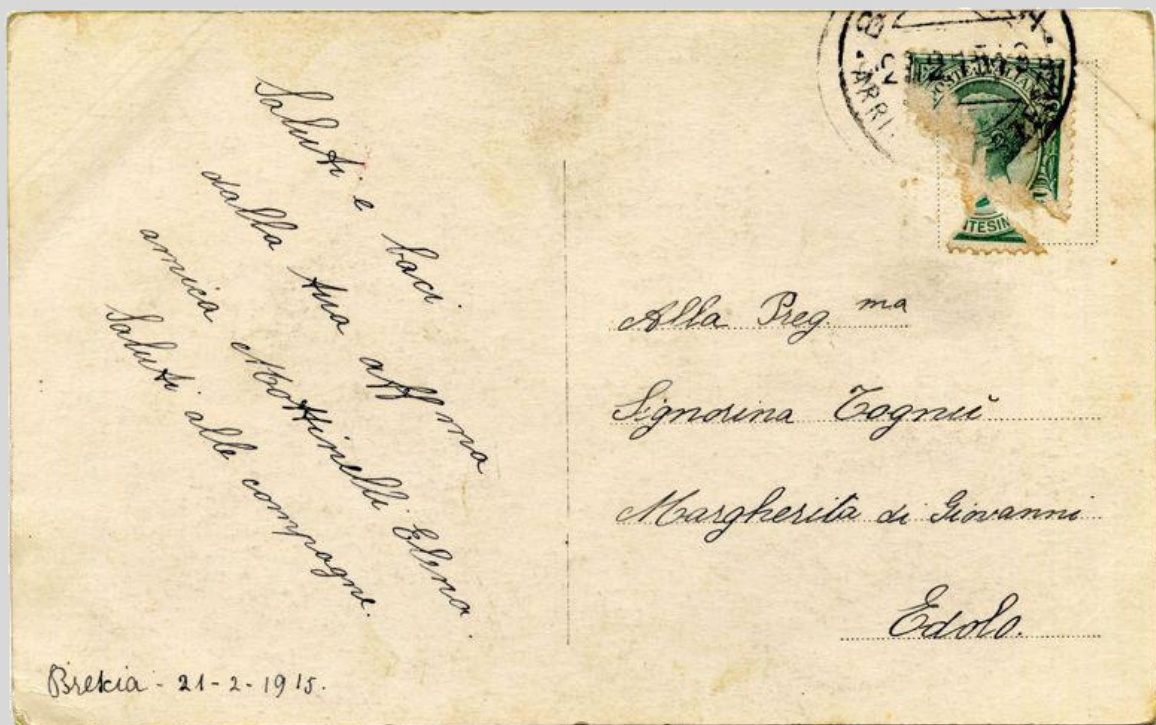 Saluti e baci
dalla tua aff ma
amica Mottinelli Elena.
Saluti alle compagne.
Brescia - 21-2-1915.
ARRI
POSTE ITALIANE
TESIM
Alla Preg. ma
Signorina
Margherita di Giovanni
Edolo.